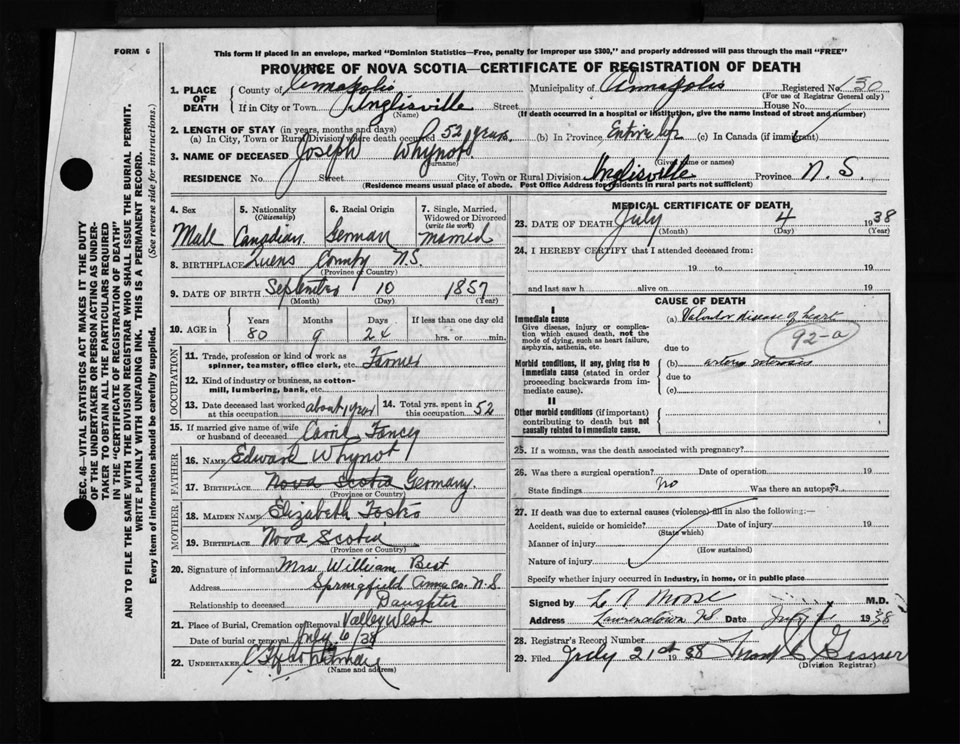 FORM 6
This form if placed in an envelope, marked "Dominion Statistics—Free, penalty for improper use $300," and properly addressed will pass through the mail "FREE"
PROVINCE OF NOVA SCOTIA—CERTIFICATE OF REGISTRATION OF DEATH
1. PLACE OF DEATH
County of Annapolis Municipality of Annapolis Registered No. 150
(For use of Registrar General only)
If in City or Town Inglisville Street House No.
(Name) (If death occurred in a hospital or institution, give the name instead of street and number)
2. LENGTH OF STAY (in years, months and days)
(a) In City, Town or Rural Division where death occurred 52 years (b) In Province Entire life (c) In Canada (if immigrant)
3. NAME OF DECEASED Joseph Whynot
(Surname) (Given name or names)
RESIDENCE No. Street City, Town or Rural Division Inglisville Province N. S.
(Residence means usual place of abode. Post Office Address for residents in rural parts not sufficient)
4. Sex 5. Nationality 6. Racial Origin 7. Single, Married,
(Citizenship) Widowed or Divorced
(write the word)
Male Canadian German Married
8. BIRTHPLACE Queens County N.S.
(Province or Country)
9. DATE OF BIRTH September 10 1857
(Month) (Day) (Year)
10. AGE in Years Months Days If less than one day old
80 9 24 hrs. or min.
OCCUPATION
11. Trade, profession or kind of work as
spinner, teamster, office clerk, etc. Farmer
12. Kind of industry or business, as cotton-
mill, lumbering, bank, etc.
13. Date deceased last worked at this occupation about 1 year 14. Total yrs. spent in this occupation 52
15. If married give name of wife
or husband of deceased Fancy
FATHER
16. NAME Edward Whynot
17. BIRTHPLACE Nova Scotia Germany
(Province or Country)
MOTHER
18. MAIDEN NAME Elizabeth
19. BIRTHPLACE Nova Scotia
(Province or Country)
20. Signature of informant Mrs William Best
Address Springfield Anna Co. N.S.
Relationship to deceased Daughter
21. Place of Burial, Cremation or Removal Valley West
Date of burial or removal July 6/38
22. UNDERTAKER
(Name and address)
MEDICAL CERTIFICATE OF DEATH
23. DATE OF DEATH July 4 1938
(Month) (Day) (Year)
24. I HEREBY CERTIFY that I attended deceased from:
19 to 19
and last saw h alive on 19
CAUSE OF DEATH
I
Immediate cause (a) Valvular disease of heart
Give disease, injury or complica-
tion which caused death, not the
mode of dying, such as heart failure,
asphyxia, asthenia, etc.
92-a
due to
Morbid conditions, if any, giving rise to (b) artery sclerosis
immediate cause (stated in order due to
proceeding backwards from im-
mediate cause). (c)
II
Other morbid conditions (if important)
contributing to death but not
causally related to immediate cause.
25. If a woman, was the death associated with pregnancy?
26. Was there a surgical operation? Date of operation 19
State findings no Was there an autopsy?
27. If death was due to external causes (violence) fill in also the following:—
Accident, suicide or homicide? Date of injury 19
(State which)
Manner of injury
(How sustained)
Nature of injury
Specify whether injury occurred in industry, in home, or in public place
Signed by L R Morse M.D.
Address Lawrencetown NS Date July 1938
28. Registrar's Record Number
29. Filed July 21st 1938
(Division Registrar)
SEC. 46—VITAL STATISTICS ACT MAKES IT THE DUTY
OF THE UNDERTAKER OR PERSON ACTING AS UNDER-
TAKER TO OBTAIN ALL THE PARTICULARS REQUIRED
IN THE "CERTIFICATE OF REGISTRATION OF DEATH"
AND TO FILE THE SAME WITH THE DIVISION REGISTRAR WHO SHALL ISSUE THE BURIAL PERMIT.
WRITE PLAINLY WITH UNFADING INK. THIS IS A PERMANENT RECORD.
Every item of information should be carefully supplied. (See reverse side for instructions.)